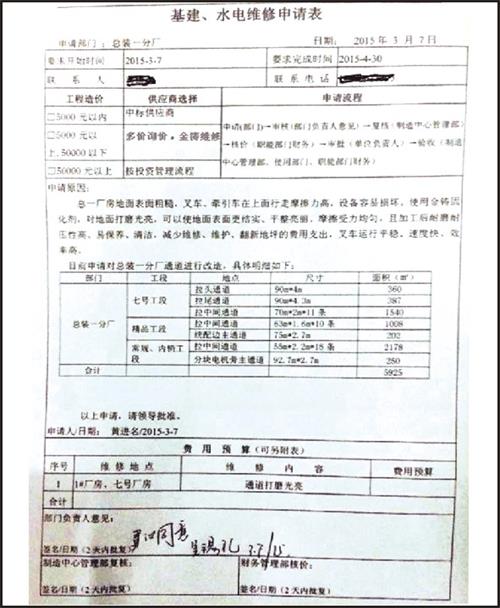 基建、水电维修申请表
申请部门：总装一分厂 日期：2015年3月7日
要求开始时间 2015-3-7 要求完成时间 2015-4-30
联系人 联系电话
工程造价 供应商选择 申请流程
□5000元以内 中标供应商
□5000元以上,50000以下 多价询价，金铸维修
□50000元以上 按投资管理流程
申请(部门)→审核(部门负责人意见)→复核(制造中心管理部)
→核价(职能部门财务)→审批(单位负责人)→验收(制造
中心管理部、使用部门、职能部门财务)
申请原因：
总一厂房地面表面粗糙，叉车、牵引车在上面行走摩擦力高，设备容易损坏，使用金铸固
化剂，对地面打磨光亮，可以使地面表面更结实、平整亮丽，摩擦受力均匀，且加工后耐磨耐
压性高、易保养、清洁，减少维修、维护，翻新地坪的费用支出，叉车运行平稳、速度快、效
率高。
目前申请对总装一分厂通道进行改造，具体明细如下：
部门 工段 地点 尺寸 面积（㎡）
总装一分厂 七号工段 拉头通道 90m*4m 360
拉尾通道 90m*4.3m 387
拉中间通道 70m*2m*11条 1540
精品工段 拉中间通道 63m*1.6m*10条 1008
线配边主通道 75m*2.7m 202
常规、内销工段 拉中间通道 55m*2.2m*18条 2178
分块电机旁主通道 92.7m*2.7m 250
合计 5925
以上申请，请领导批准。
申请人/日期：黄进名/2015-3-7
费用预算（可另附表）
序号 维修地点 维修内容 费用预算
1 1#厂房、七号厂房 通道打磨光亮
合计
部门负责人意见：
同意
签名/日期（2天内批复）
制造中心管理部复核： 财务管理部核价：
签名/日期（2天内批复） 签名/日期（2天内批复）